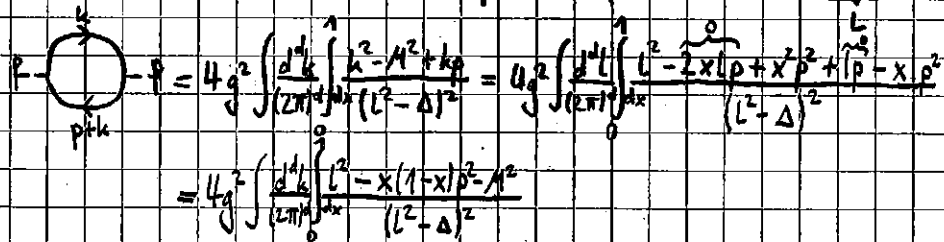 k
p p = 4g² ∫ d^dk/(2π)^d ∫₀¹ dx (k² - M² + kp)/(l² - Δ)² = 4g² ∫ d^dl/(2π)^d ∫₀¹ dx (l² - 2xlp + x²p² + lp - xp²)/(l² - Δ)²
p+k
= 4g² ∫ d^dk/(2π)^d ∫₀¹ dx (l² - x(1-x)p² - M²)/(l² - Δ)²